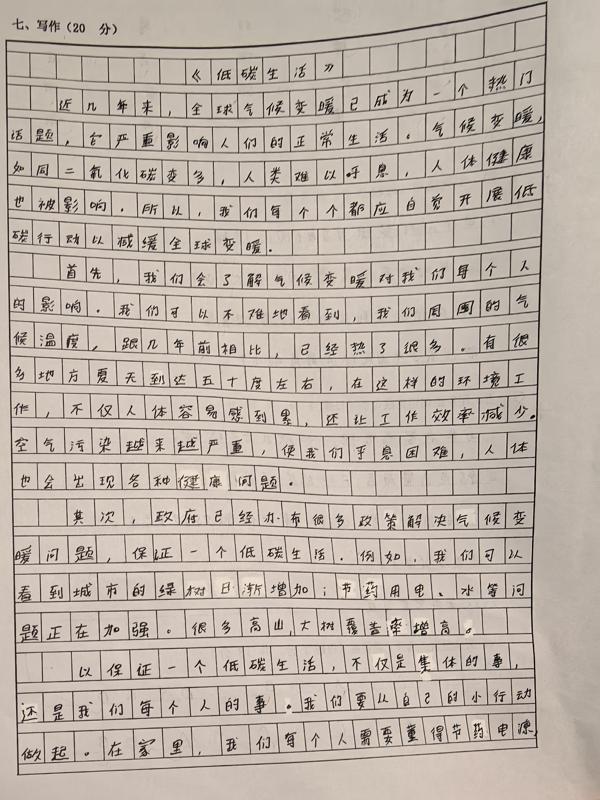 七、写作（20 分）
《低碳生活》
近几年来，全球气候变暖已成为一个热门
话题，它严重影响人们的正常生活。气候变暖，
如同二氧化碳变多，人类难以呼息，人体健康
也被影响。所以，我们每个个都应自觉开展低
碳行动以减缓全球变暖。
首先，我们会了解气候变暖对我们每个人
的影响。我们可以不难地看到，我们周围的气
候温度，跟几年前相比，已经热了很多。有很
多地方夏天到达五十度左右，在这样的环境工
作，不仅人体容易感到累，还让工作效率减少。
空气污染越来越严重，使我们乎息困难，人体
也会出现各种健康问题。
其次，政府已经办布很多政策解决气候变
暖问题，保证一个低碳生活。例如，我们可以
看到城市的绿树日渐增加；节药用电、水等问
题正在加强。很多高山，大树覆盖率增高。
以保证一个低碳生活，不仅是集体的事，
还是我们每个人的事。我们要从自己的小行动
做起。在家里，我们每个人需要懂得节药电源，